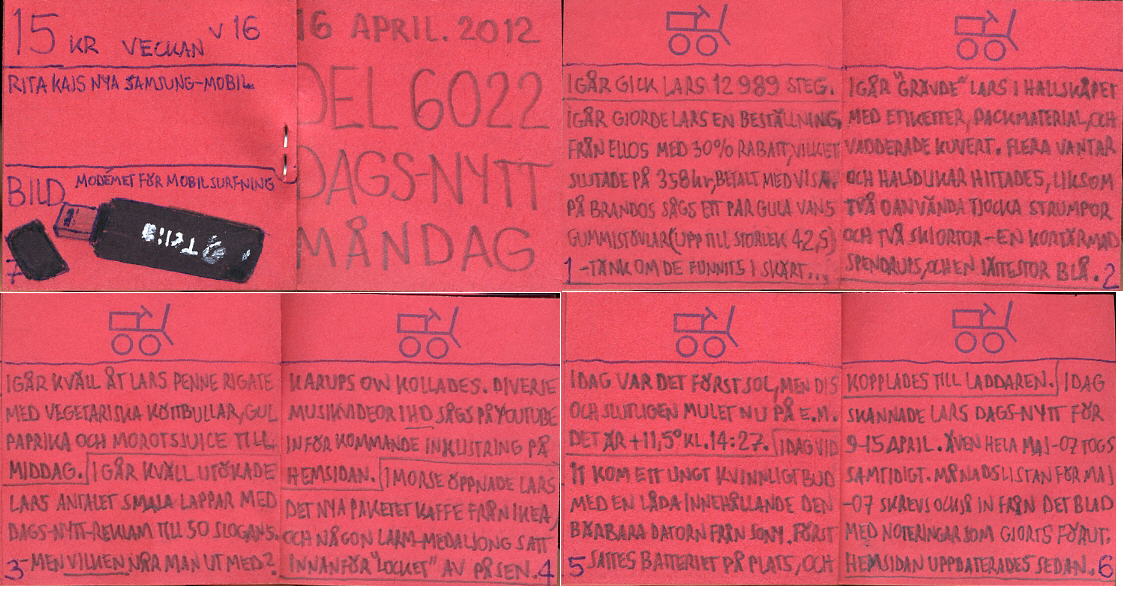 15 KR VECKAN V 16
RITA KAJS NYA SAMSUNG-MOBIL.
BILD MODEMET FÖR MOBILSURFNING
7
16 APRIL. 2012
DEL 6022
DAGS-NYTT
MÅNDAG
IGÅR GICK LARS 12 989 STEG.
IGÅR GJORDE LARS EN BESTÄLLNING
FRÅN ELLOS MED 30% RABATT, VILKET
SLUTADE PÅ 358 kr, BETALT MED VISA.
PÅ BRANDOS SÅGS ETT PAR GULA VANS
GUMMISTÖVLAR (UPP TILL STORLEK 42,5)
1 -TÄNK OM DE FUNNITS I SKÄRT...
IGÅR "GRÄVDE" LARS I HALLSKÅPET
MED ETIKETTER, PACKMATERIAL, OCH
VADDERADE KUVERT. FLERA VANTAR
OCH HALSDUKAR HITTADES, LIKSOM
TVÅ OANVÄNDA TJOCKA STRUMPOR
OCH TVÅ SKJORTOR - EN KORTÄRMAD
SPENDRUPS, OCH EN JÄTTESTOR BLÅ. 2
IGÅR KVÄLL ÅT LARS PENNE RIGATE
MED VEGETARISKA KÖTTBULLAR, GUL
PAPRIKA OCH MOROTSJUICE TILL
MIDDAG. IGÅR KVÄLL UTÖKADE
LARS ANTALET SMALA LAPPAR MED
DAGS-NYTT-REKLAM TILL 50 SLOGANS.
3 -MEN VILKEN NÅR MAN UT MED?
KARUPS OW KOLLADES. DIVERSE
MUSIKVIDEOR I HD SÅGS PÅ YOUTUBE
INFÖR KOMMANDE INKLISTRING PÅ
HEMSIDAN. IMORSE ÖPPNADE LARS
DET NYA PAKETET KAFFE FRÅN IKEA,
OCH NÅGON LARM-MEDALJONG SATT
INNANFÖR "LOCKET" AV PÅSEN. 4
IDAG VAR DET FÖRST SOL, MEN DIS
OCH SLUTLIGEN MULET NU PÅ E.M.
DET ÄR +11,5° KL. 14:27. IDAG VID
11 KOM ETT UNGT KVINNLIGT BUD
MED EN LÅDA INNEHÅLLANDE DEN
BÄRBARA DATORN FRÅN SONY. FÖRST
5 SATTES BATTERIET PÅ PLATS, OCH
KOPPLADES TILL LADDAREN. IDAG
SKANNADE LARS DAGS-NYTT FÖR
9-15 APRIL. ÄVEN HELA MAJ -07 TOGS
SAMTIDIGT. MÅNADSLISTAN FÖR MAJ
-07 SKREVS OCKSÅ IN FRÅN DET BLAD
MED NOTERINGAR SOM GJORTS FÖRUT.
HEMSIDAN UPPDATERADES SEDAN. 6